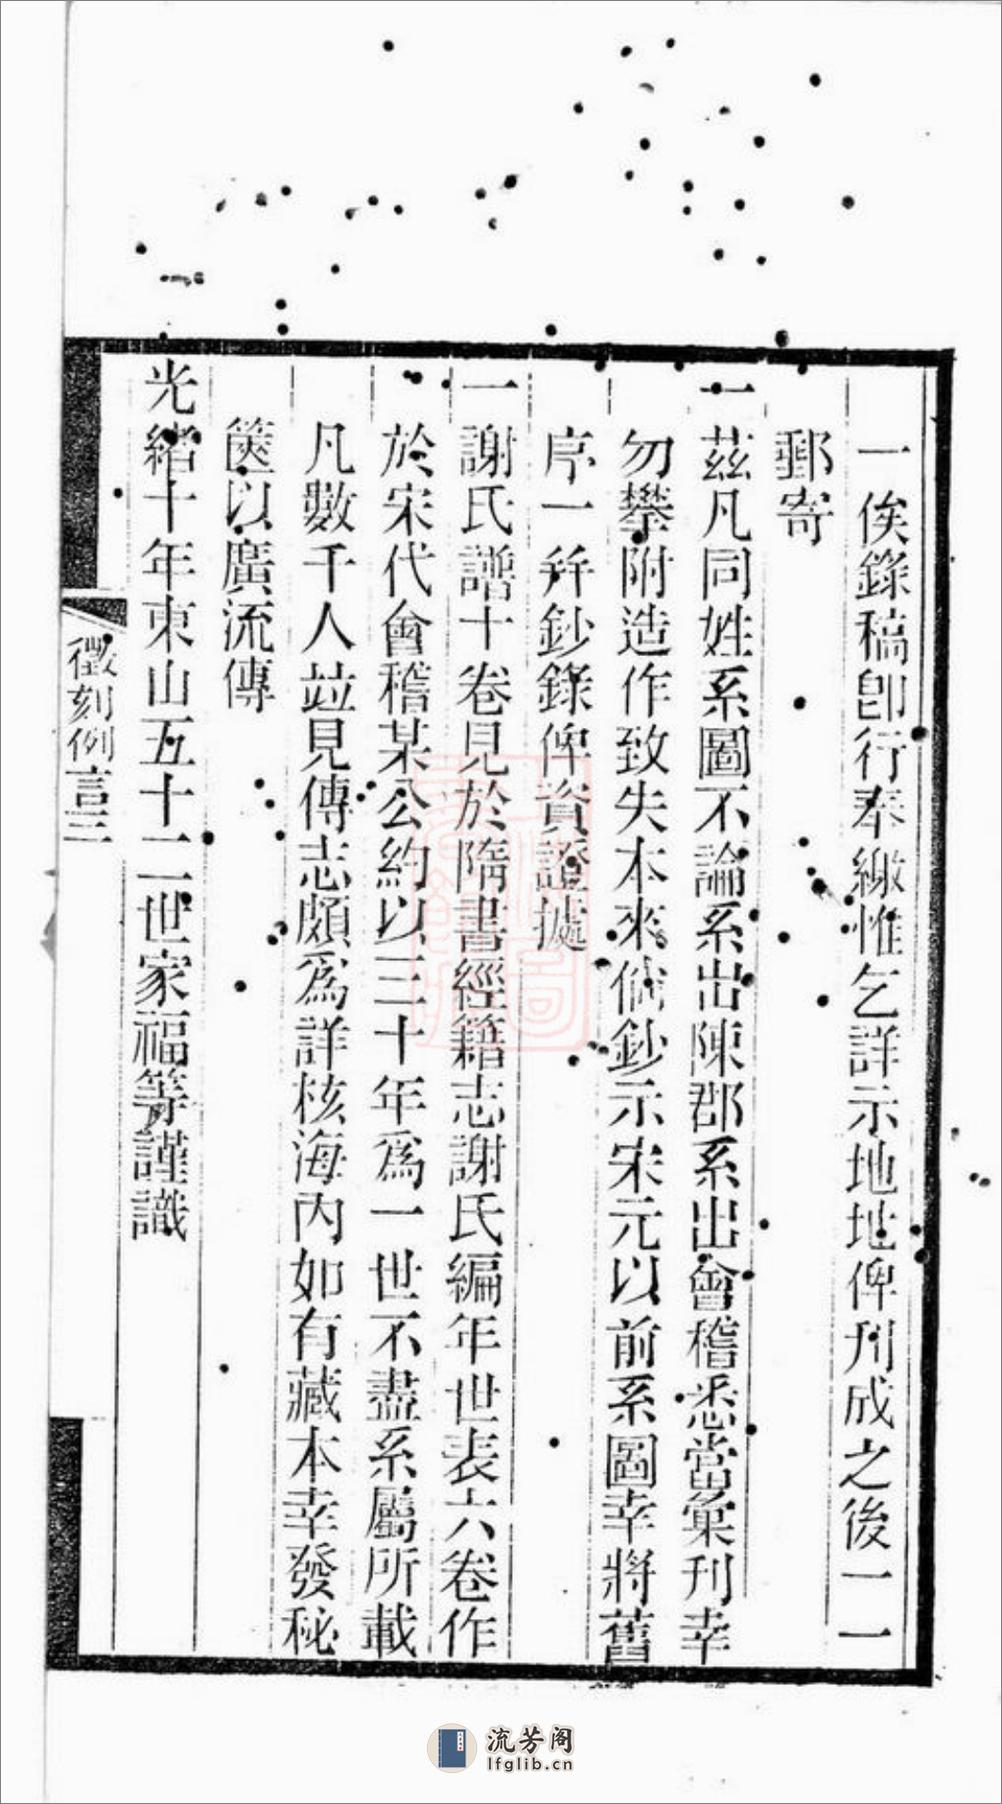 一俟錄稿卽行奉繳惟乞詳示地址俾刋成之後一一
郵寄
一茲凡同姓系圖不論系出陳郡系出會稽悉當彙刋幸
勿攀附造作致失本來倘鈔示宋元以前系圖幸將舊
序一幷鈔錄俾資證據
一謝氏譜十卷見於隋書經籍志謝氏編年世表六卷作
於宋代會稽某公約以三十年爲一世不盡系屬所載
凡數千人竝見傳志頗爲詳核海內如有藏本幸發秘
篋以廣流傳
光緒十年東山五十二世家福等謹識
徵刻例言三
流芳阁
lfglib.cn